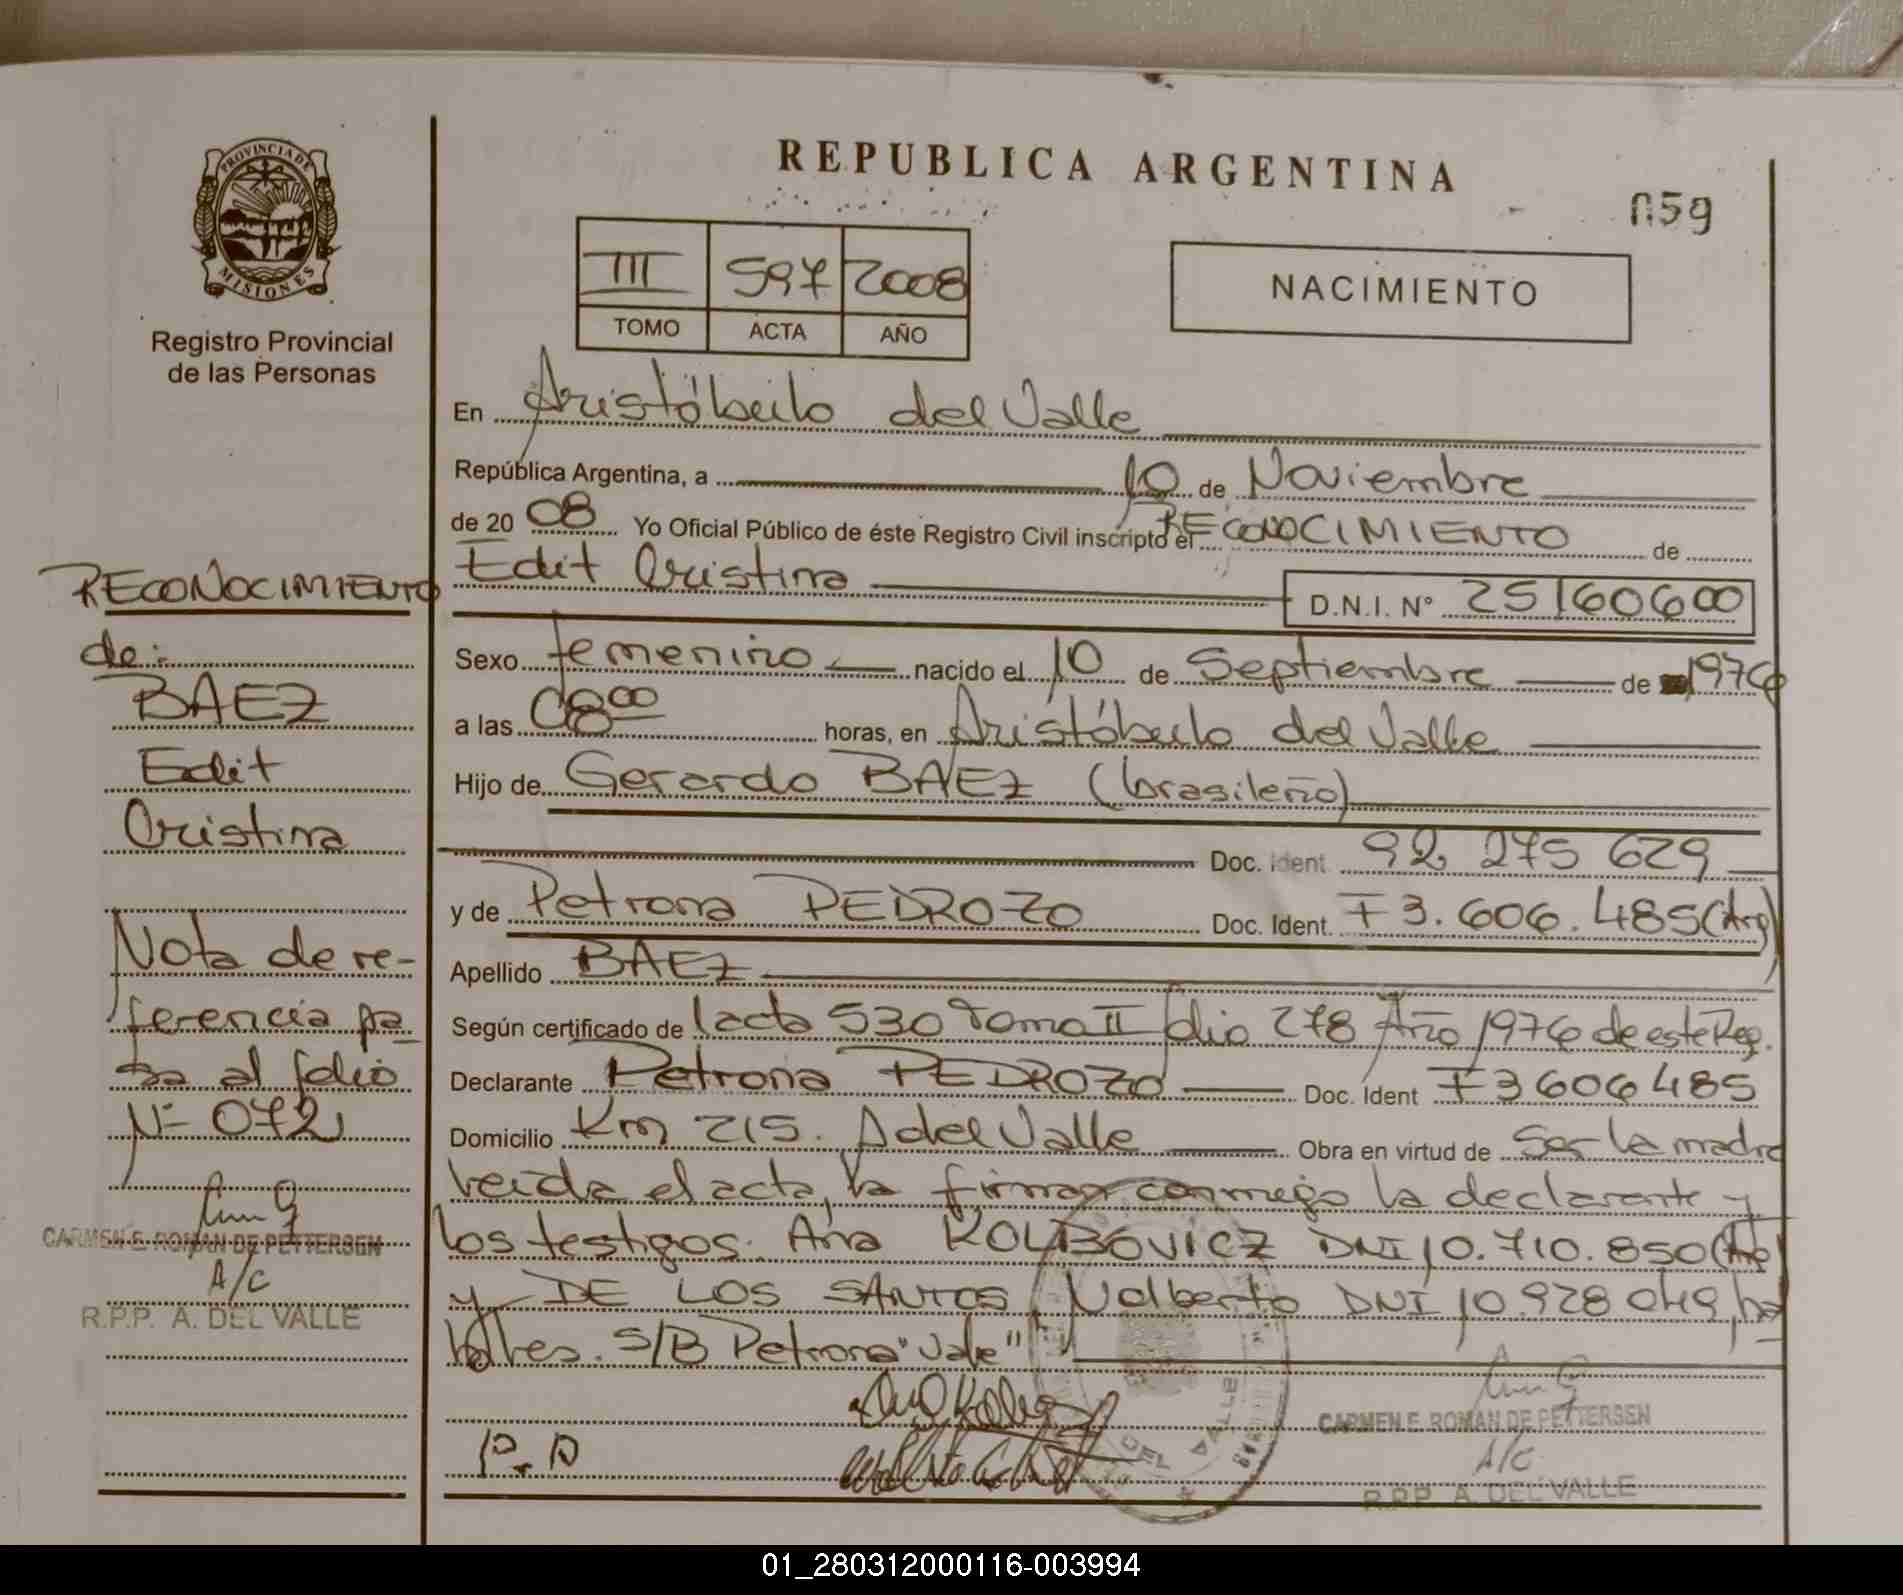 PROVINCIA DE
MISIONES
Registro Provincial
de las Personas
RECONOCIMIENTO
de:
BAEZ
Edit
Cristina
Nota de re-
ferencia pa
sa al folio
Nº 072
CARMEN E. ROMAN DE PETTERSEN
A/C
R.P.P. A. DEL VALLE
REPUBLICA ARGENTINA
059
III 597 2008
TOMO ACTA AÑO
NACIMIENTO
En Aristóbulo del Valle
República Argentina, a 10 de Noviembre
de 2008 Yo Oficial Público de éste Registro Civil inscripto el RECONOCIMIENTO de
Edit Cristina D.N.I. Nº 25160600
Sexo femenino nacido el 10 de Septiembre de 1976
a las 08 00 horas, en Aristóbulo del Valle
Hijo de Gerardo BAEZ (brasileño)
Doc. Ident. 92 275 629
y de Petrona PEDROZO Doc. Ident. F 3.606.485 (Arg)
Apellido BAEZ
Según certificado de acta 530 Tomo II folio 278 Año 1976 de este Reg.
Declarante Petrona PEDROZO Doc. Ident F 3606485
Domicilio Km 215. A del Valle Obra en virtud de Ser la madre
Leída el acta, la firman conmigo la declarante y
los testigos. Ana KOLIBOVICZ DNI 10.710.850 (Arg)
y DE LOS SANTOS, Valberto DNI 10.928 049, ha
biles. S/B Petrona "Vale"
P. D
CARMEN E. ROMAN DE PETTERSEN
A/C
R.P.P. A. DEL VALLE
01_280312000116-003994